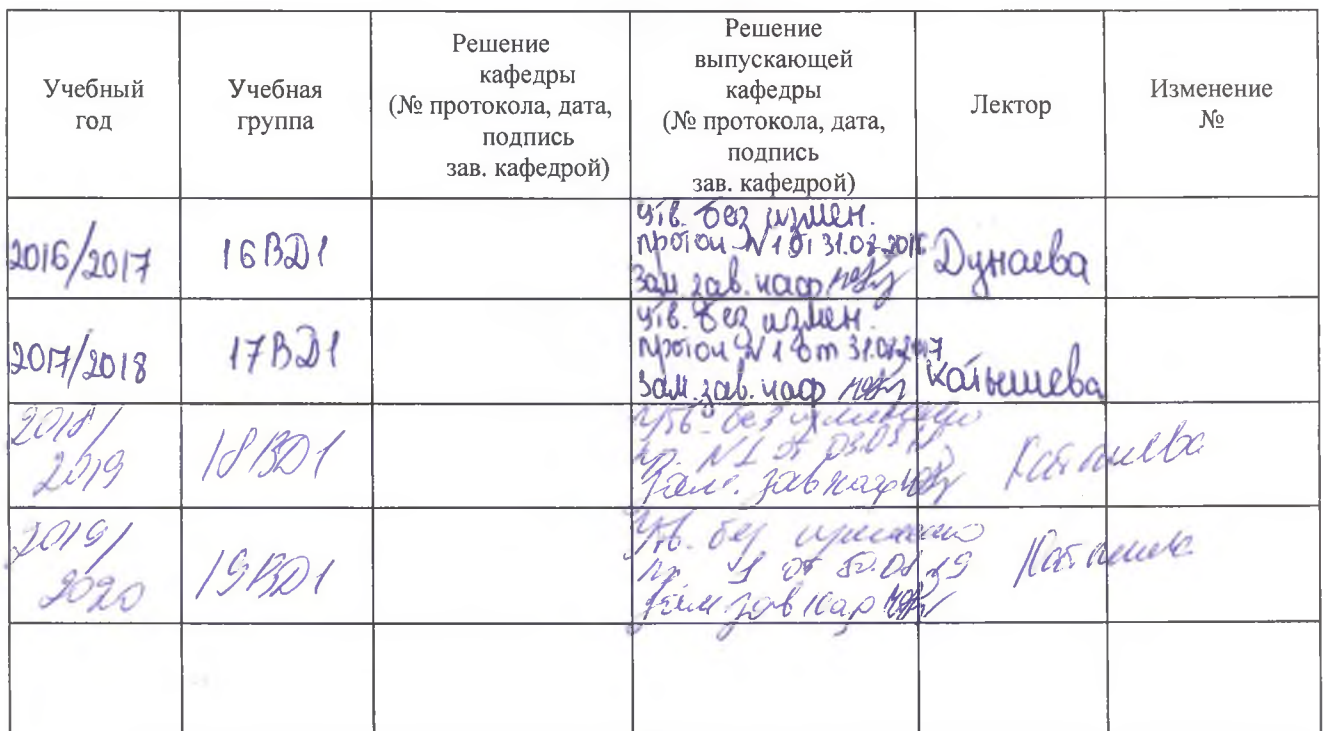 Учебный
год
Учебная
группа
Решение
кафедры
(№ протокола, дата,
подпись
зав. кафедрой)
Решение
выпускающей
кафедры
(№ протокола, дата,
подпись
зав. кафедрой)
Лектор
Изменение
№
2016/2017
16ВД1
Утв. без измен.
проток N 1 от 31.08.2016
Зам. зав. каф
Дунаева
2017/2018
17ВД1
Утв. без измен.
проток N 1 от 31.08.2017
Зам. зав. каф
Катышева
2018/
2019
18ВД1
Утв. без
N1 от
Зам. зав каф
2019/
2020
19ВД1
Утв. без
от 19
Зам зав каф